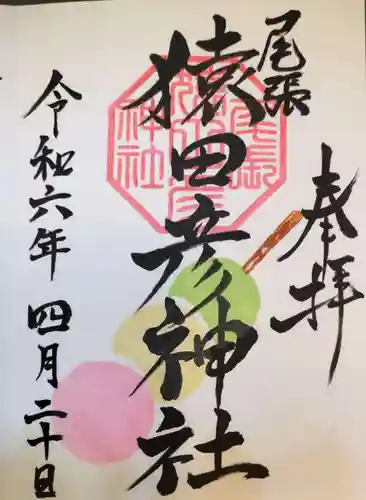 奉拝
尾張
猿田彦神社
令和六年 四月二十日